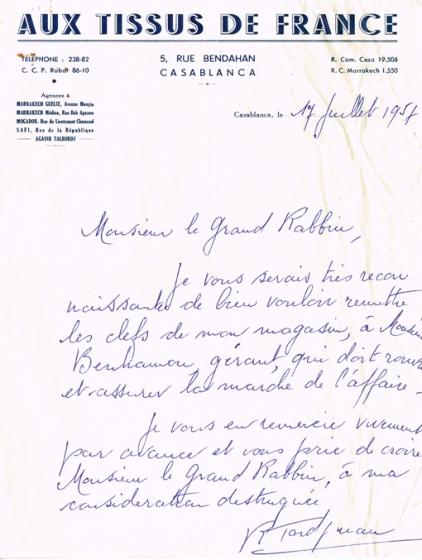 AUX TISSUS DE FRANCE
TÉLÉPHONE : 238-82
C. C. P. Rabat 86-10
5, RUE BENDAHAN
CASABLANCA
R. Com. Casa 19.506
R. C. Marrakech 1.550
Agences à
MARRAKECH GUELIZ, Avenue Mangin
MARRAKECH Médina, Rue Bab Agnaou
MOGADOR, Rue du Lieutenant Chamand
SAFI, Rue de la République
AGADIR TALBORDJ
Casablanca, le 17 Juillet
Monsieur le Grand Rabbin,
Je vous serais très recon
naissante de bien vouloir remettre
les clefs de mon magasin, à
Benhamou, gérant, qui doit
et assurer la marche de l'affaire.
Je vous en remercie vivement
par avance et vous prie de croire
Monsieur le Grand Rabbin, à ma
considération distinguée